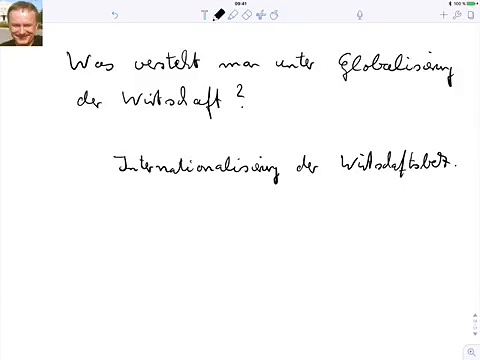 09:41
100 %
Was versteht man unter Globalisierung
der Wirtschaft?
Internationalisierung der Wirtschaftsbez.